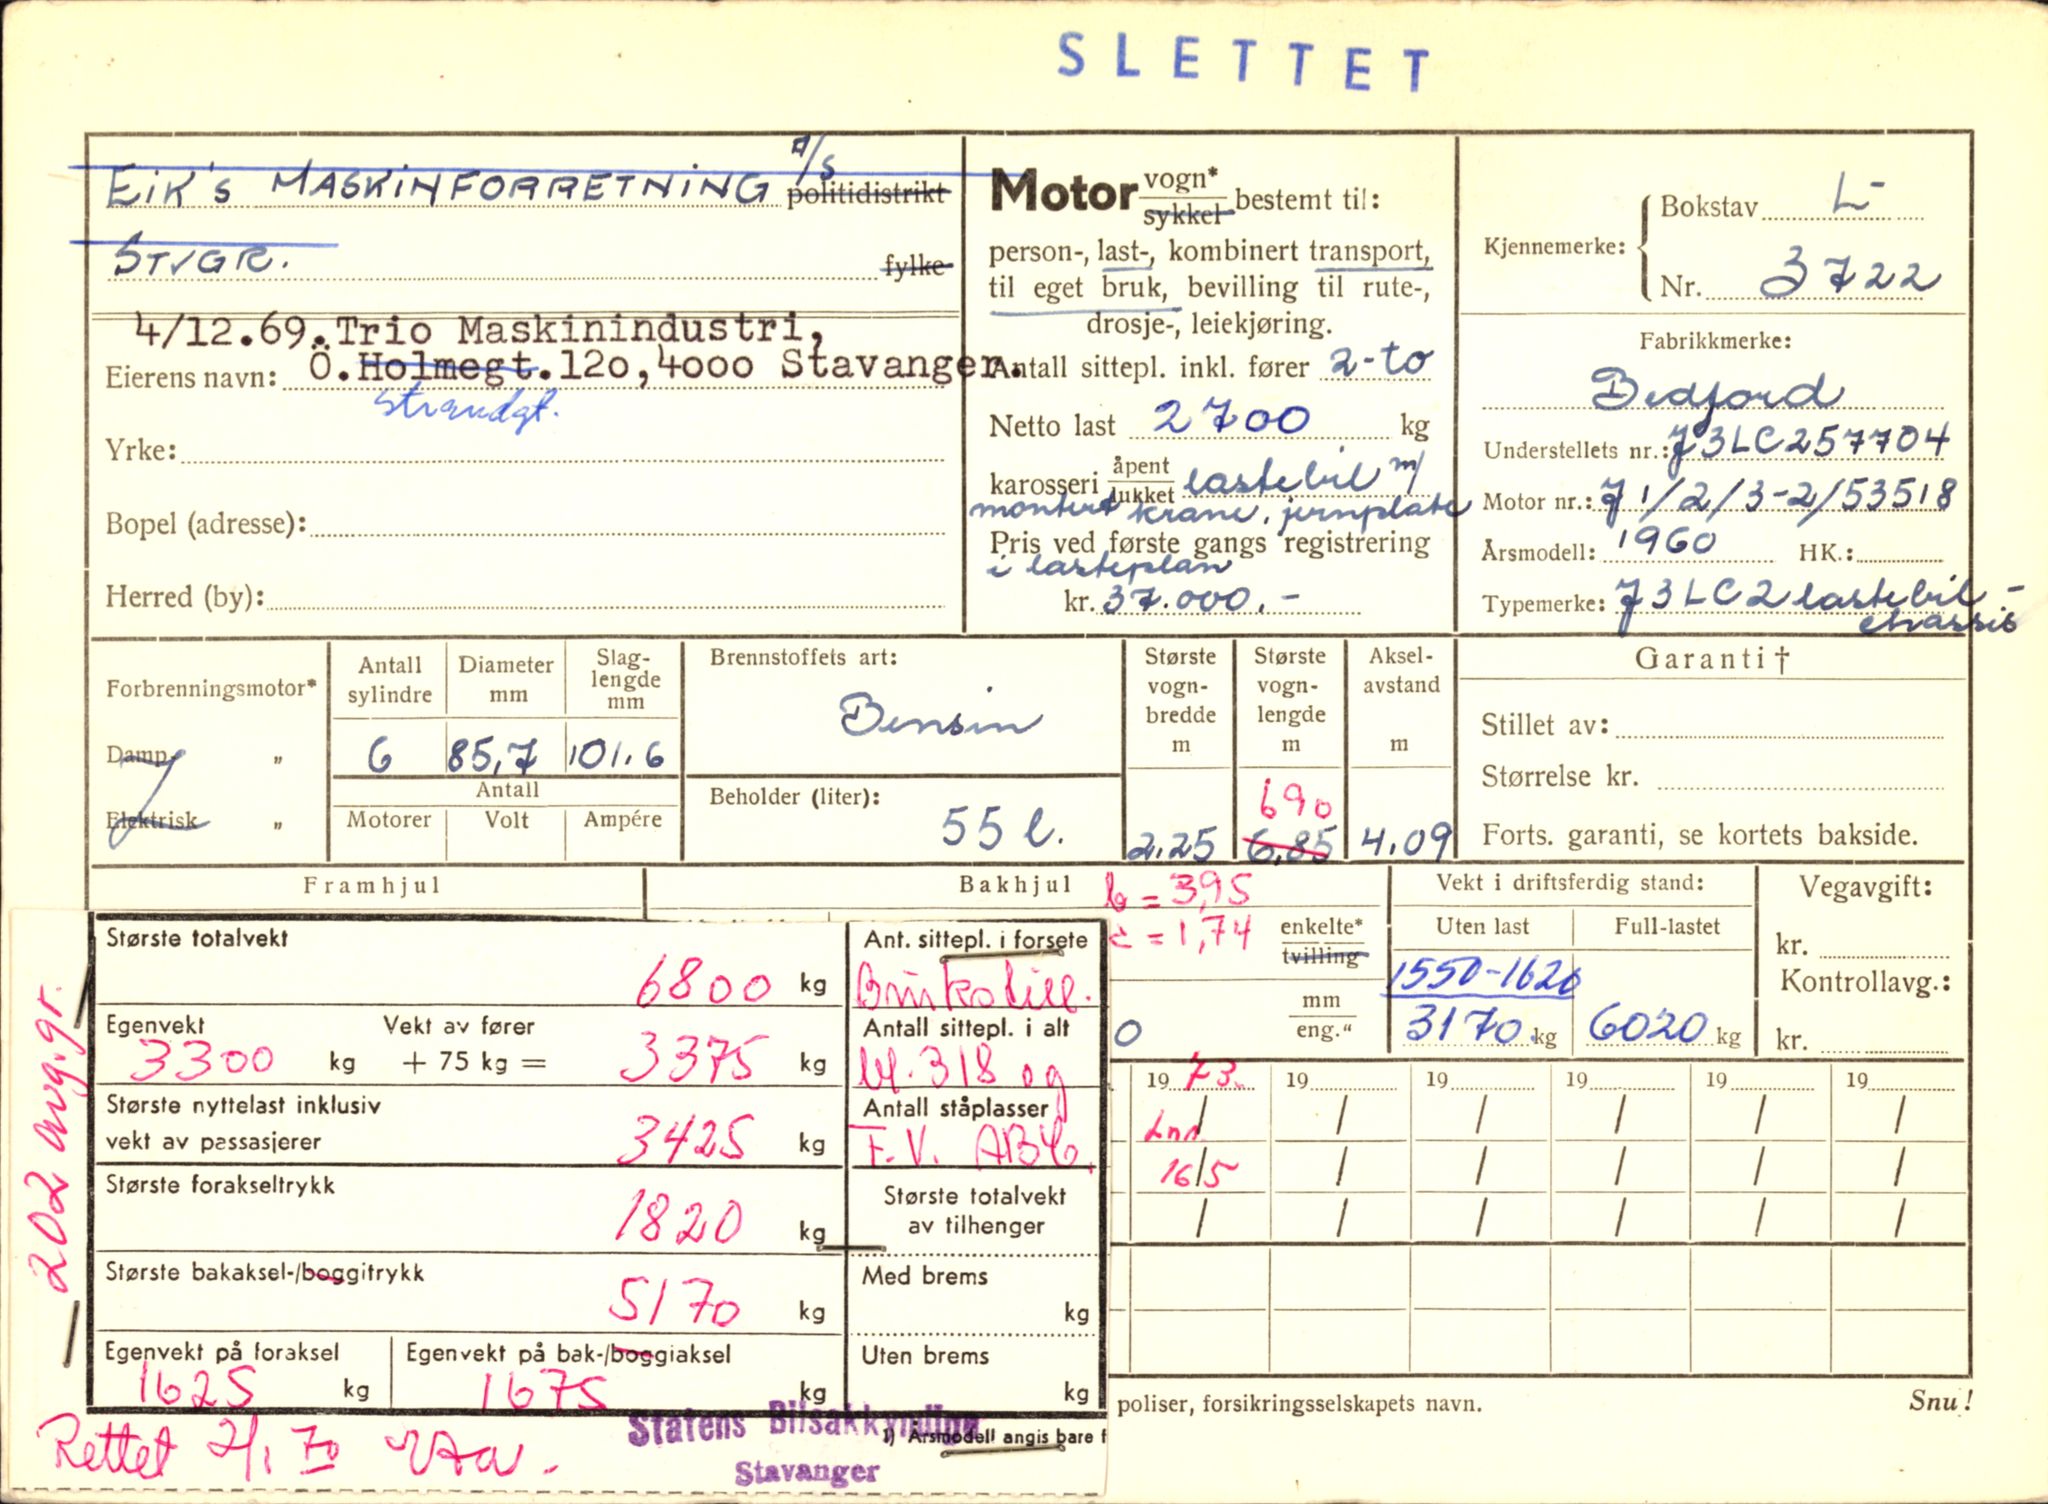 SLETTET
EIK'S MASKINFORRETNING A/S politidistrikt
STVGR. fylke
4/12.69. Trio Maskinindustri,
Ö. Holmegt. 120, 4000 Stavanger.
Eierens navn:
Strandgt.
Yrke:
Bopel (adresse):
Herred (by):
Motor vogn* sykkel bestemt til:
person-, last-, kombinert transport,
til eget bruk, bevilling til rute-,
drosje-, leiekjøring.
Antall sittepl. inkl. fører 2-to
Netto last 2700 kg
karosseri åpent lukket lastebil m/
montert krane, jernplate
Pris ved første gangs registrering
i lasteplan
kr. 37.000.-
Kjennemerke: Bokstav L-
Nr. 3722
Fabrikkmerke:
Bedford
Understellets nr.: J3LC257704
Motor nr.: J 1/2/3-2/53518
Årsmodell: 1960 HK.:
Typemerke: J3LC2 lastebil-
chassis
Forbrenningsmotor*
Damp "
Elektrisk "
Antall sylindre
6
Diameter mm
85,7
Slag-lengde mm
101.6
Antall
Motorer Volt Ampére
Brennstoffets art:
Bensin
Beholder (liter):
55 l.
Største vogn-bredde m
2.25
Største vogn-lengde m
690
6,85
Aksel-avstand m
4.09
Garanti †
Stillet av:
Størrelse kr.
Forts. garanti, se kortets bakside.
Framhjul
Bakhjul
b = 3,95
c = 1,74
enkelte*
tvilling
mm
eng."
0
Vekt i driftsferdig stand:
Uten last Full-lastet
1550-1620
3170 kg 6020 kg
Vegavgift:
kr.
Kontrollavg.:
kr.
19 73 19 19 19 19 19
16/5
202 avg.gr.
Største totalvekt
6800 kg
Egenvekt Vekt av fører
3300 kg + 75 kg = 3375 kg
Største nyttelast inklusiv
vekt av passasjerer 3425 kg
Største forakseltrykk
1820 kg
Største bakaksel-/boggitrykk
5170 kg
Egenvekt på foraksel
1625 kg
Egenvekt på bak-/boggiaksel
1675 kg
Ant. sittepl. i forsete
Bruksbill.
Antall sittepl. i alt
bl. 318 og
Antall ståplasser
F.V. ABC.
Største totalvekt
av tilhenger
Med brems
kg
Uten brems
kg
poliser, forsikringsselskapets navn.
Snu!
Rettet 2/1 70
Statens Bilsakkyndige
Stavanger
1) Årsmodell angis bare f